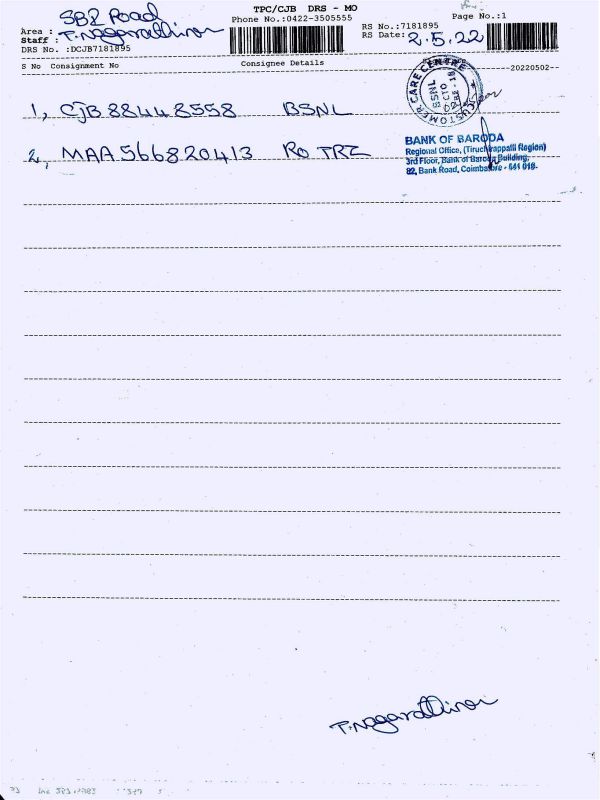 TPC/CJB DRS - MO
Area : SBZ Road
Phone No.:0422-3505555
Page No.:1
Staff : T. Nagarathina
RS No.:7181895
RS Date: 2.5.22
DRS No. :DCJB7181895
S No Consignment No Consignee Details 20220502
1, CJB 88448558 BSNL
CUSTOMER CARE CENTRE
BSNL
2, MAA 566820413 RO TRZ
BANK OF BARODA
Regional Office, (Tiruchirappalli Region)
3rd Floor, Bank of Baroda Building,
82, Bank Road, Coimbatore - 641 018.
T. Nagarathina